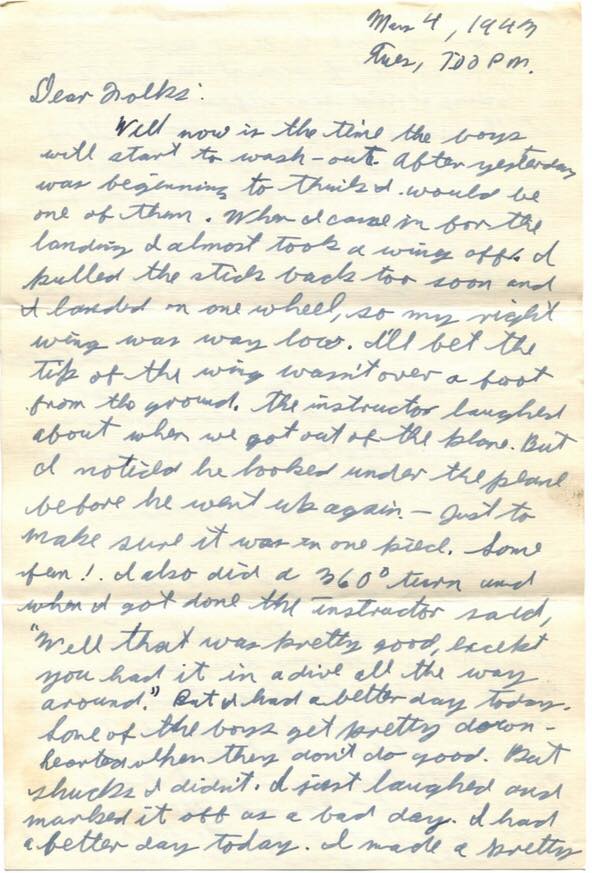 May 4, 1943
Tues, 7:00 P.M.
Dear Folks:
Well now is the time the boys
will start to wash-out. After yesterday
was beginning to think I would be
one of them. When I came in for the
landing I almost took a wing off. I
pulled the stick back too soon and
I landed on one wheel, so my right
wing was way low. I'll bet the
tip of the wing wasn't over a foot
from the ground. The instructor laughed
about when we got out of the plane. But
I noticed he looked under the plane
before he went up again. – Just to
make sure it was in one piece. Some
fun! I also did a 360° turn and
when I got done the instructor said,
"Well that was pretty good, except
you had it in a dive all the way
around." But I had a better day today.
Some of the boys get pretty down-
hearted when they don't do good. But
shucks I didn't. I just laughed and
marked it off as a bad day. I had
a better day today. I made a pretty